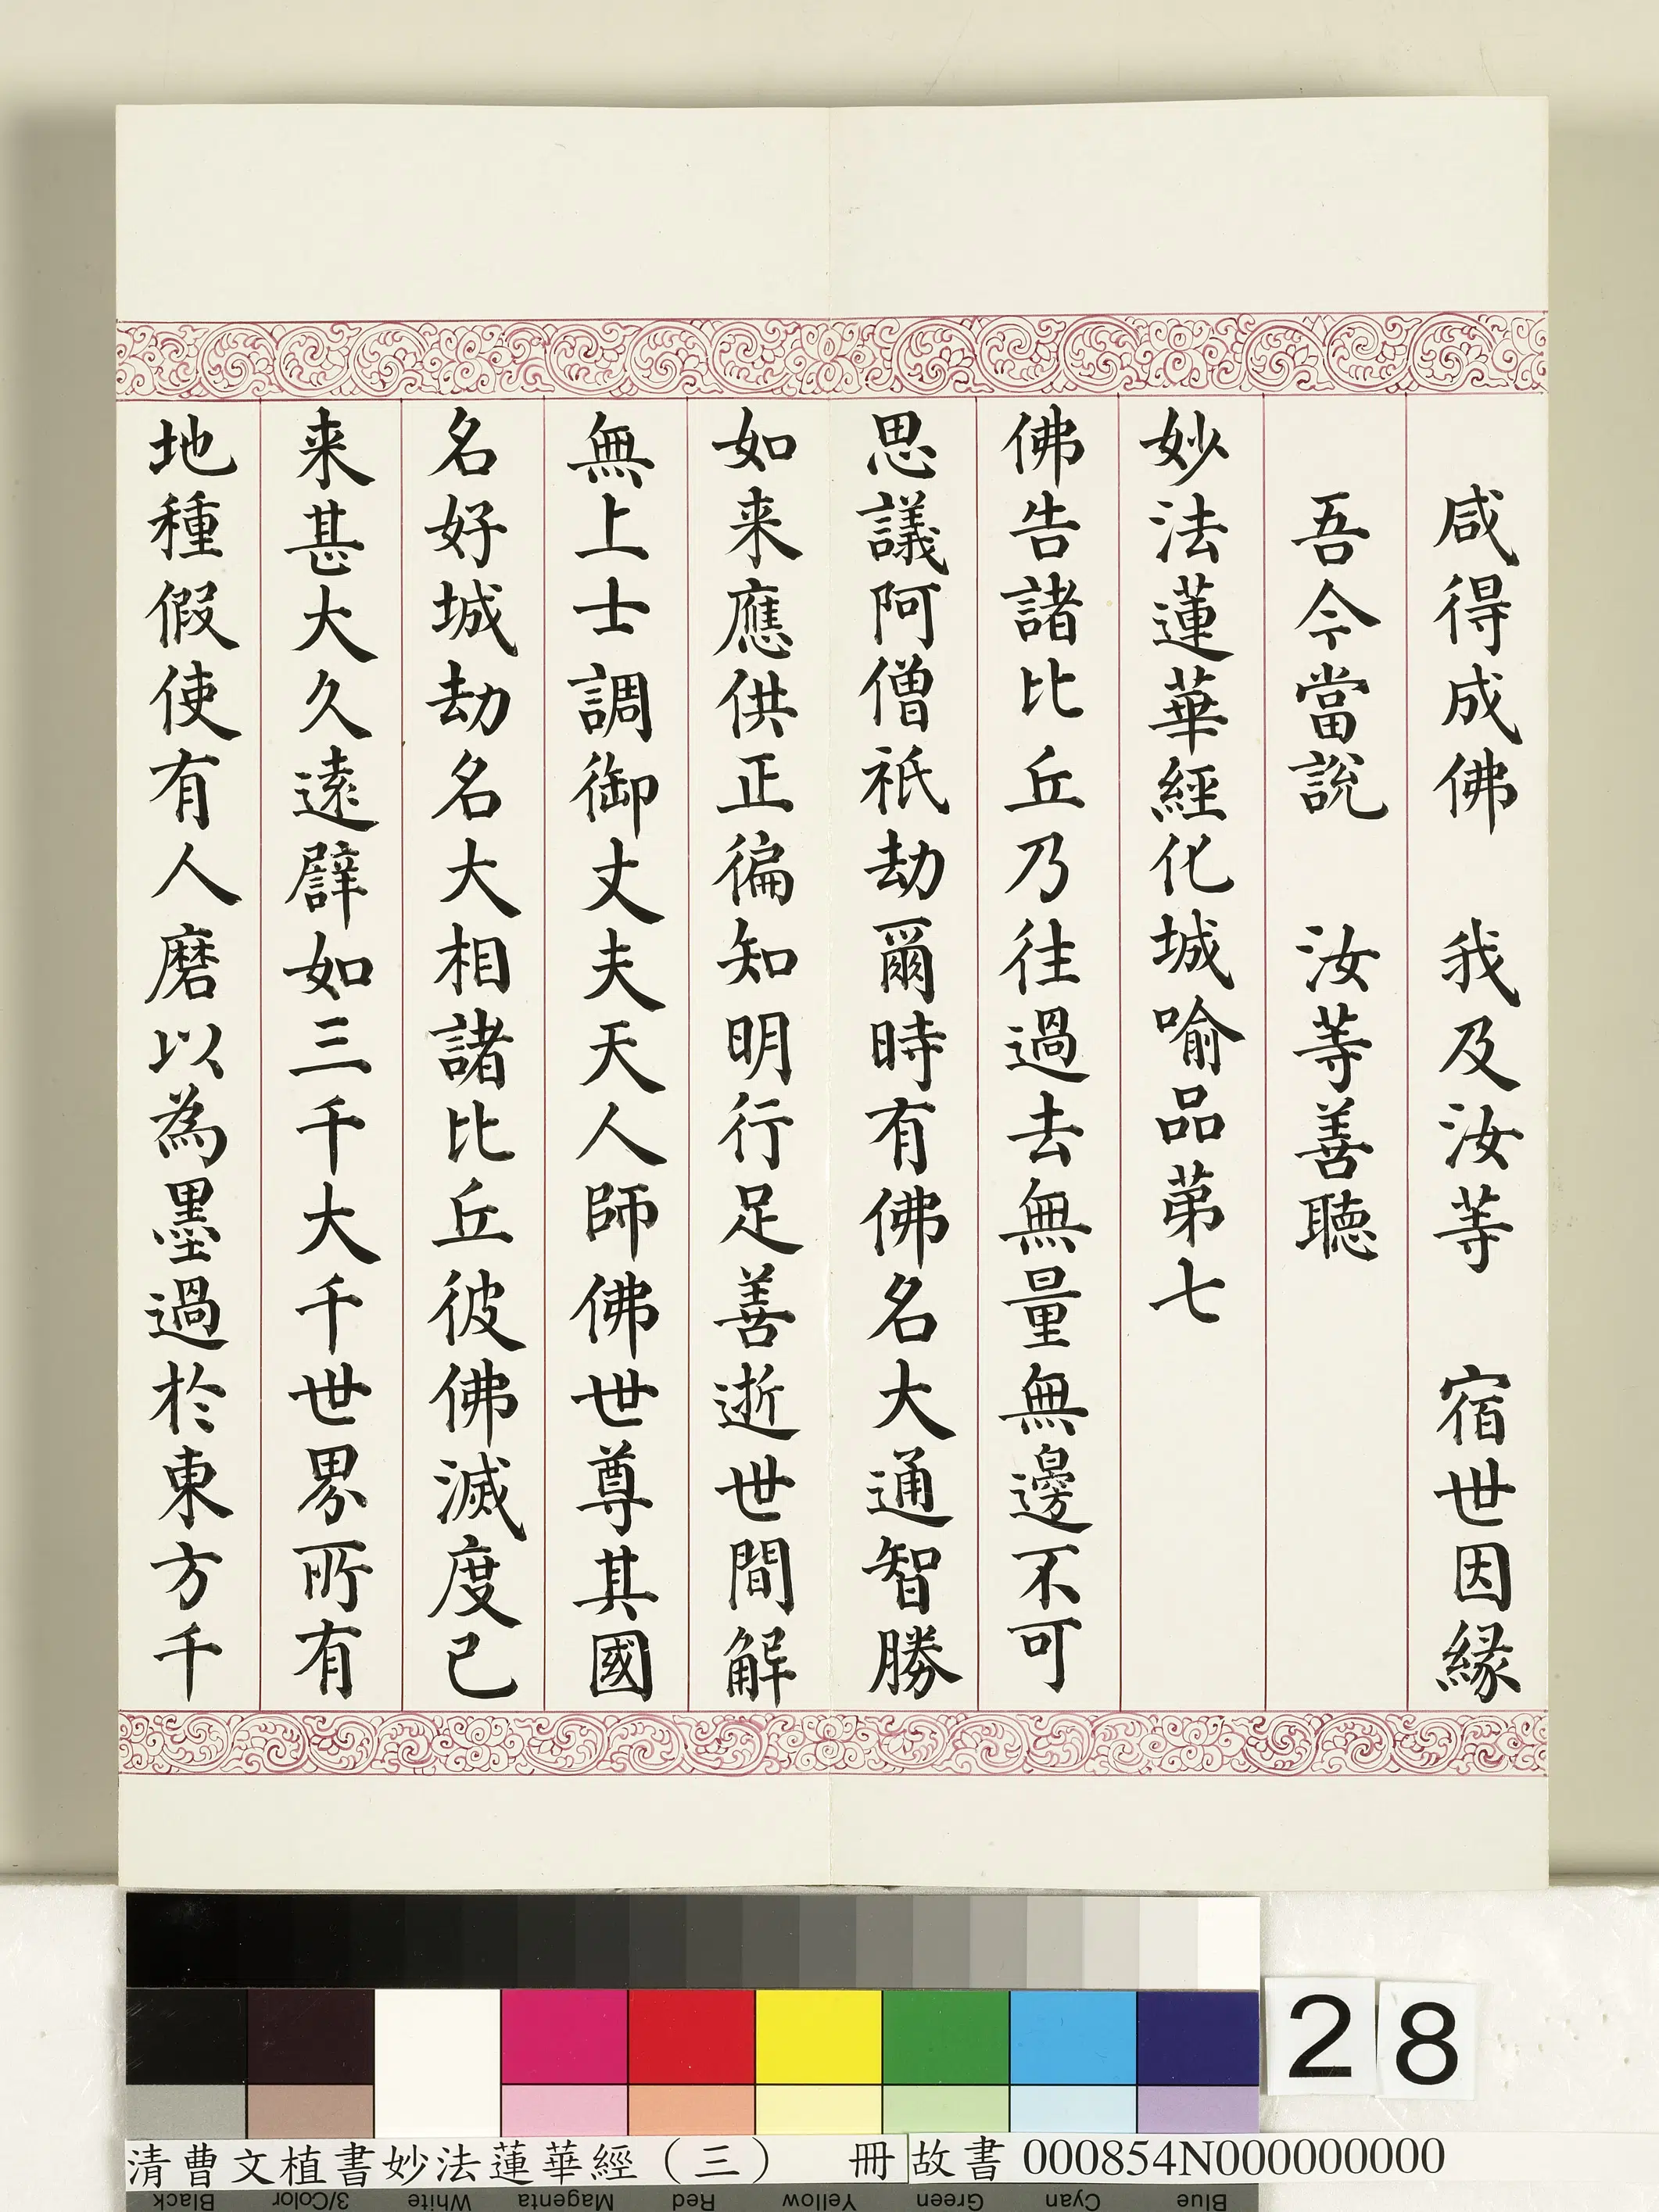 咸得成佛　我及汝等　宿世因緣
吾今當說　汝等善聽
妙法蓮華經化城喻品第七
佛告諸比丘乃往過去無量無邊不可
思議阿僧祇劫爾時有佛名大通智勝
如来應供正徧知明行足善逝世間解
無上士調御丈夫天人師佛世尊其國
名好城劫名大相諸比丘彼佛滅度已
来甚大久遠譬如三千大千世界所有
地種假使有人磨以為墨過於東方千
28
清曹文植書妙法蓮華經（三）　冊　故書 000854N000000000
Black 3/Color White Magenta Red Yellow Green Cyan Blue